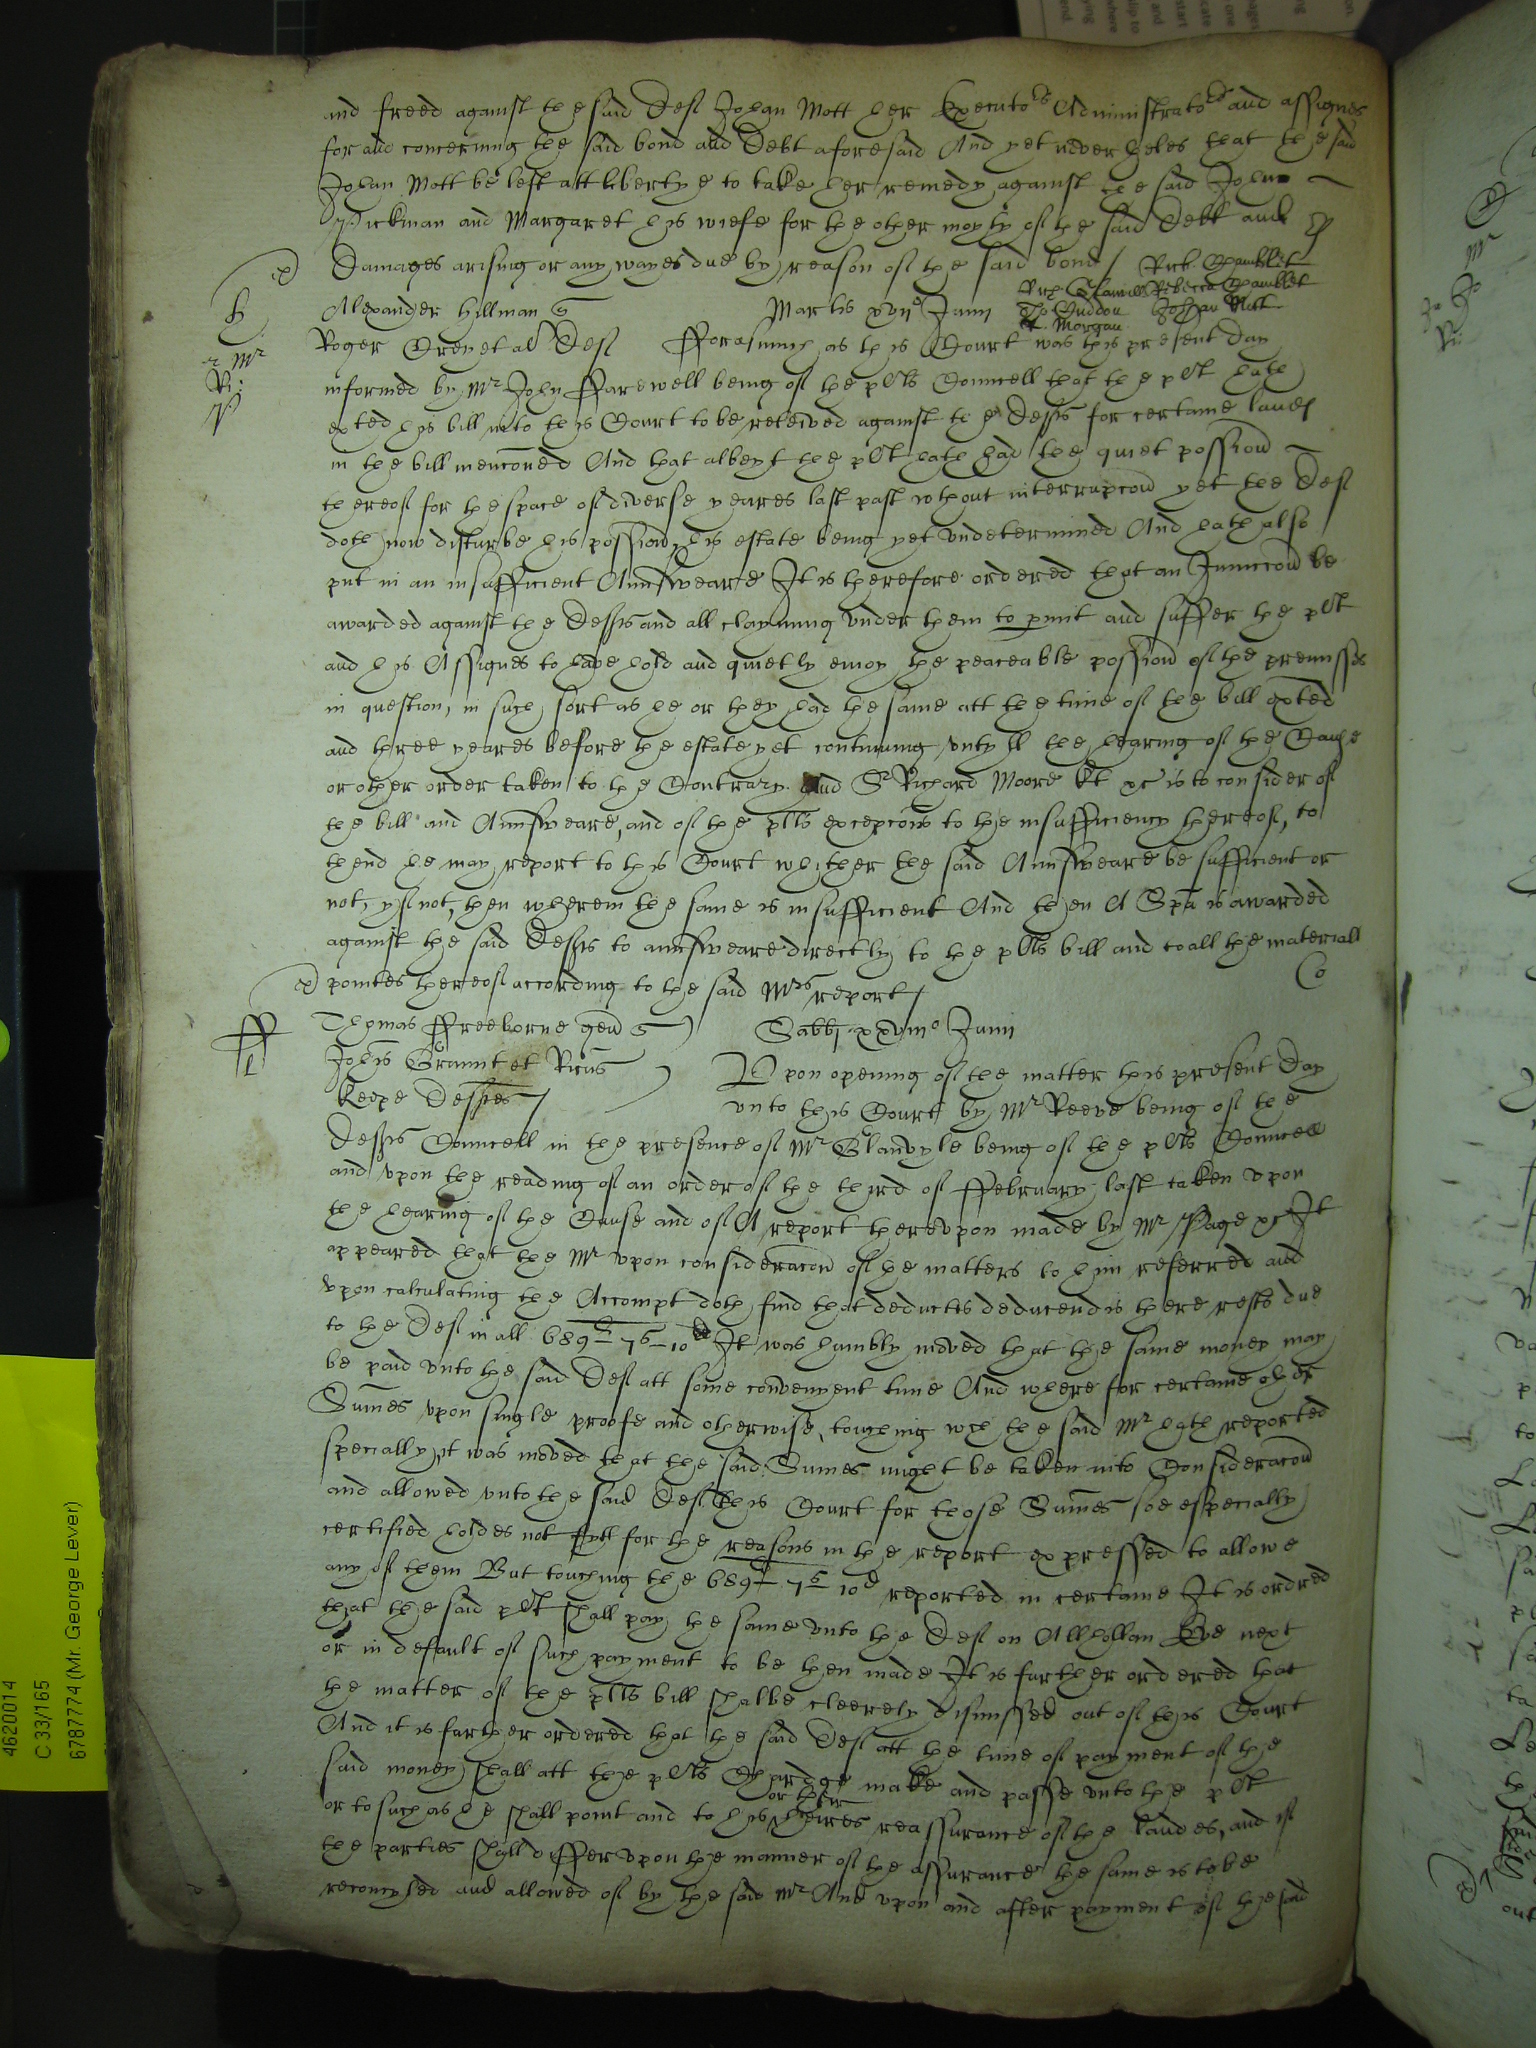 and freed against the said Deft Johan Mott her Executors Administrators and assignes
for and concerning the said bond and Debt aforesaid And yet nevertheles that the said
Johan Mott be left att libertye to take her remedy against the said John
Pickman and Margaret his wiefe for the other moyty of the said Debt and
Damages arising or any wayes due by reason of the said bond / Rich. Gamblet
Rich Glanvill Rebecca Gamblet
Alexander Hillman Martis xvijo Junij Tho Hudson Johan Mott
W. Morgan
Roger Grey et al Deft Fforasmuch as this Court was this present day
informed by Mr John Ffarewell being of the plts Councell that the plt hath
exted his bill into this Court to be releived against the Defts for certaine landes
in the bill menconed And that albeyt the plt hath had the quiet possion
thereof for the space of diverse yeares last past wthout interrupcon yet the Deft
doth now disturbe his possion, his estate being yet undetermined And hath also
put in an insufficient Aunsweare It is therefore ordered that an Iniunccon be
awarded against the Defts and all clayming under them to pmit and suffer the plt
and his Assignes to have hold and quietly enioy the peaceable possion of the premisses
in question, in such sort as he or they had the same att the time of the bill exted
and three yeares before the estate yet continuing, untyll the hearing of the Cause
or other order taken to the Contrary. And Sr Richard Moore kt &c is to consider of
the bill and Aunsweare, and of the plts excepcons to the insufficiency thereof, to
thend he may report to this Court whether the said Aunsweare be sufficient or
not, yf not, then wherein the same is insufficient And then A Spa is awarded
against the said Defts to aunsweare directly to the plts bill and to all the materiall
pointes thereof according to the said Mrs report /
Thomas Ffreeborne gen Sabbi xxviijo Junij
Johis Graunt et Ricus Upon opening of the matter this present day
Keepe Deftes unto this Court by Mr Reeve being of the
Defts Councell in the presence of Mr Glanvyle being of the plts Councell
and upon the reading of an order of the third of Ffebruary last taken upon
the hearing of the Cause and of A report thereupon made by Mr Page &c It
appeared that the Mr upon consideracon of the matters to him referred and
upon calculating the Accompt doth find that deductis deducendis there rests due
to the Deft in all 689li 7s 10d It was humbly moved that the same money may
be paid unto the said Deft att some convenyent time And where for certaine other
Sumes upon single proofe and otherwise, touching wch the said Mr hath reported
specially, it was moved that the said Sumes might be taken into Consideracon
and allowed unto the said Deft This Court for those Sumes soe especially
certified holdes not fytt for the reasons in the report expressed to allowe
any of them But touching the 689li 7s 10d reported in certaine It is ordred
that the said plt shall pay the same unto the Deft on Allhollan Eve next
or in default of such payment to be then made It is further ordered that
the matter of the plts bill shalbe cleerely dismissed out of this Court
And it is further ordered that the said Deft att the time of payment of the
said money shall att the plts Chardge make and passe unto the plt
or to such as he shall point and to his or their heires reassurance of the landes, and if
the parties shall differ upon the manner of the assurance the same is to be
reconcyled and allowed of by the said Mr And upon and after payment of the said
4620014
C 33/165
6787774 (Mr. George Lever)